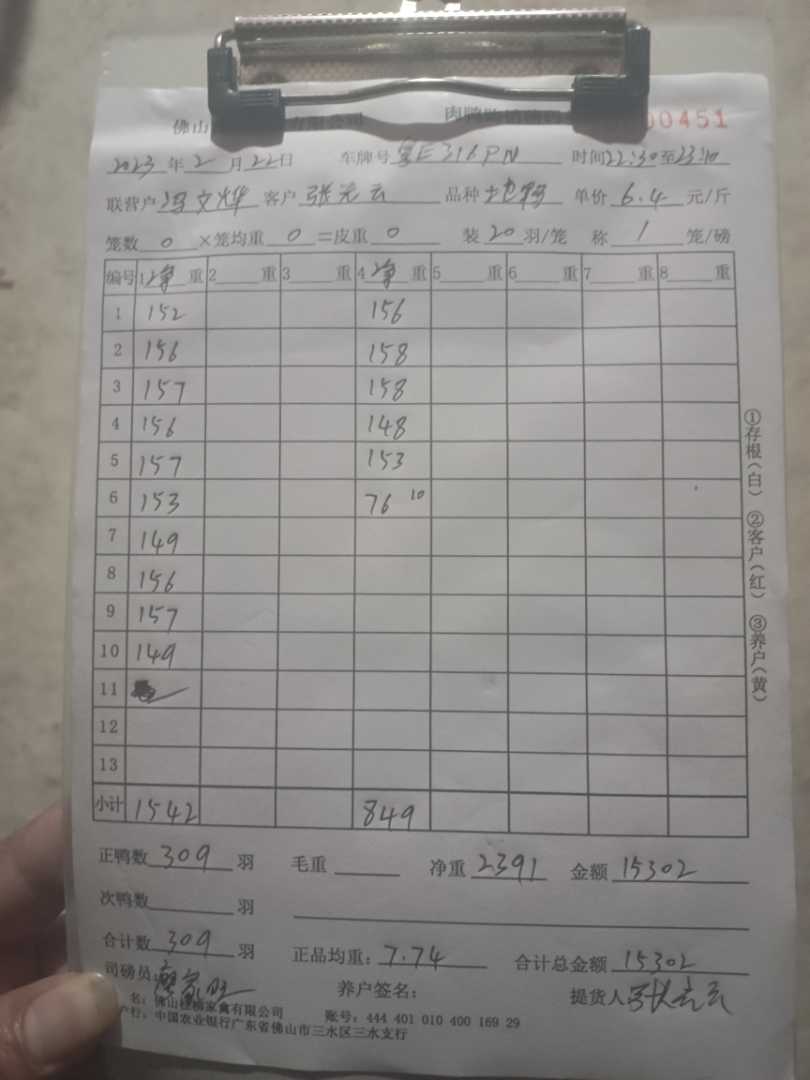 佛山 有限公司 肉鸭 00451
2023年2月22日 车牌号粤E316PN 时间22:30至23:10
联营户冯文烨 客户张光云 品种 单价6.4元/斤
笼数0×笼均重0=皮重0 装20羽/笼 称1笼/磅
编号 1净重 2重 3重 4净重 5重 6重 7重 8重
1 152 156
2 156 158
3 157 158
4 156 148
5 157 153
6 153 76 10
7 149
8 156
9 157
10 149
11
12
13
小计 1542 849
正鸭数309羽 毛重 净重2391 金额15302
次鸭数 羽
合计数309羽 正品均重:7.74 合计总金额15302
司磅员: 养户签名: 提货人张光云
名:佛山 家禽有限公司 账号:444 401 010 400 169 29
户行:中国农业银行广东省佛山市三水区三水支行
①存根(白) ②客户(红) ③养户(黄)